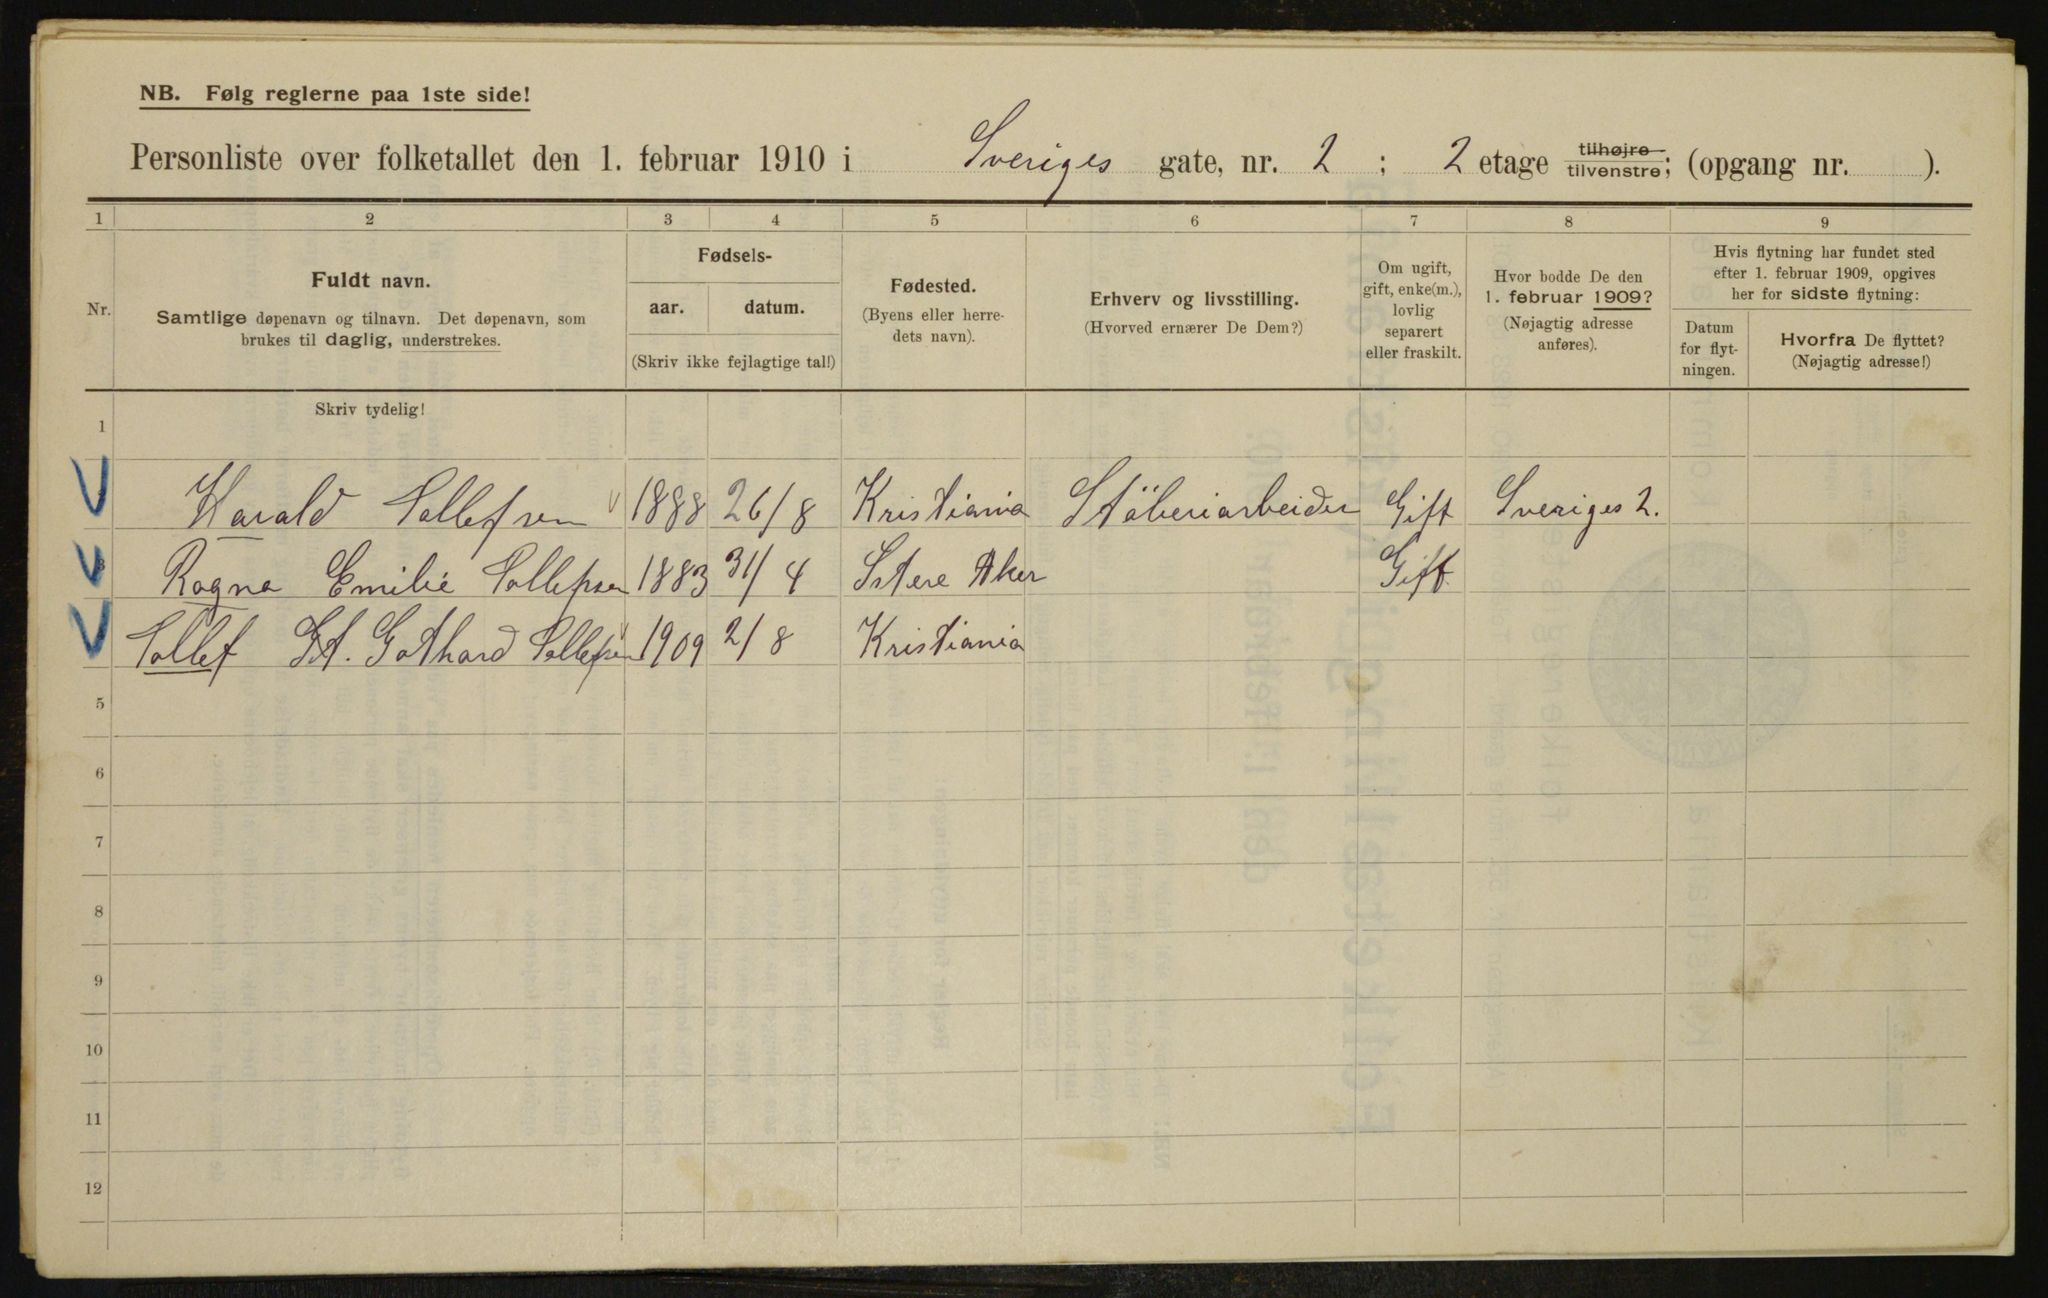 NB. Følg reglerne paa 1ste side!
Personliste over folketallet den 1. februar 1910 i Sveriges gate, nr. 2 ; 2 etage tilhøjre tilvenstre; (opgang nr. ).
1 2 3 4 5 6 7 8 9
Nr.
Fuldt navn.
Samtlige døpenavn og tilnavn. Det døpenavn, som
brukes til daglig, understrekes.
Fødsels-
aar. datum.
(Skriv ikke fejlagtige tal!)
Fødested.
(Byens eller herre-
dets navn).
Erhverv og livsstilling.
(Hvorved ernærer De Dem?)
Om ugift,
gift, enke(m.),
lovlig
separert
eller fraskilt.
Hvor bodde De den
1. februar 1909?
(Nøjagtig adresse
anføres).
Hvis flytning har fundet sted
efter 1. februar 1909, opgives
her for sidste flytning:
Datum
for flyt-
ningen.
Hvorfra De flyttet?
(Nøjagtig adresse!)
Skriv tydelig!
1
Harald Sollefsen 1888 26/8 Kristiania Stöberiarbeider Gift Sveriges 2.
3 Ragna Emilie Sollefsen 1883 31/4 Gift
Sollef Gothard Sollefsen 1909 2/8 Kristiania
5
6
7
8
9
10
11
12